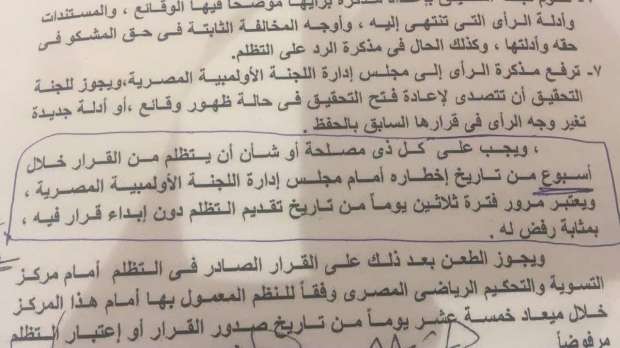 برأيها موضحاً فيها الوقائع ، والمستندات
وأدلة الرأى التى تنتهى إليه ، وأوجه المخالفة الثابتة فى حق المشكو فى
حقه وأدلتها ، وكذلك الحال فى مذكرة الرد على التظلم.
٧- ترفع مذكرة الرأى إلى مجلس إدارة اللجنة الأولمبية المصرية،ويجوز للجنة
التحقيق أن تتصدى لإعادة فتح التحقيق فى حالة ظهور وقائع ،أو أدلة جديدة
تغير وجه الرأى فى قرارها السابق بالحفظ .
، ويجب على كل ذى مصلحة أو شأن أن يتظلم من القرار خلال
أسبوع من تاريخ إخطاره أمام مجلس إدارة اللجنة الأولمبية المصرية ،
ويعتبر مرور فترة ثلاثين يوماً من تاريخ تقديم التظلم دون إبداء قرار فيه ،
بمثابة رفض له .
ويجوز الطعن بعد ذلك على القرار الصادر فى التظلم أمام مركز
التسوية والتحكيم الرياضى المصرى وفقاً للنظم المعمول بها أمام هذا المركز
خلال ميعاد خمسة عشر يوماً من تاريخ صدور القرار أو إعتبار التظلم
مرفوضاً